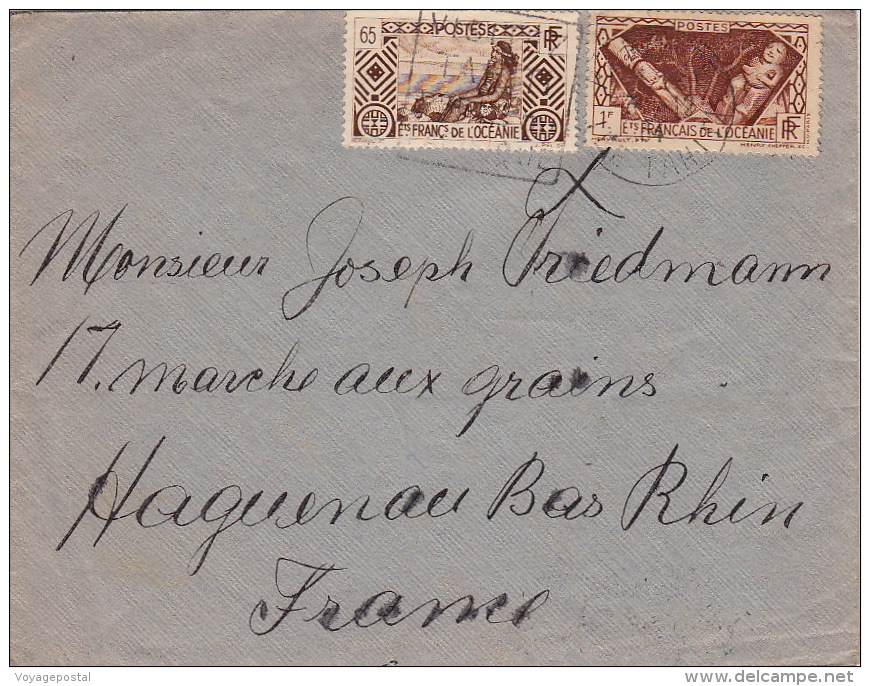 65 POSTES RF
ETS FRANCS DE L'OCÉANIE
POSTES
1F RF
ETS FRANCAIS DE L'OCÉANIE
Monsieur Joseph Friedmann
17. marche aux grains
Haguenau Bas Rhin
France
Voyagepostal
www.delcampe.net